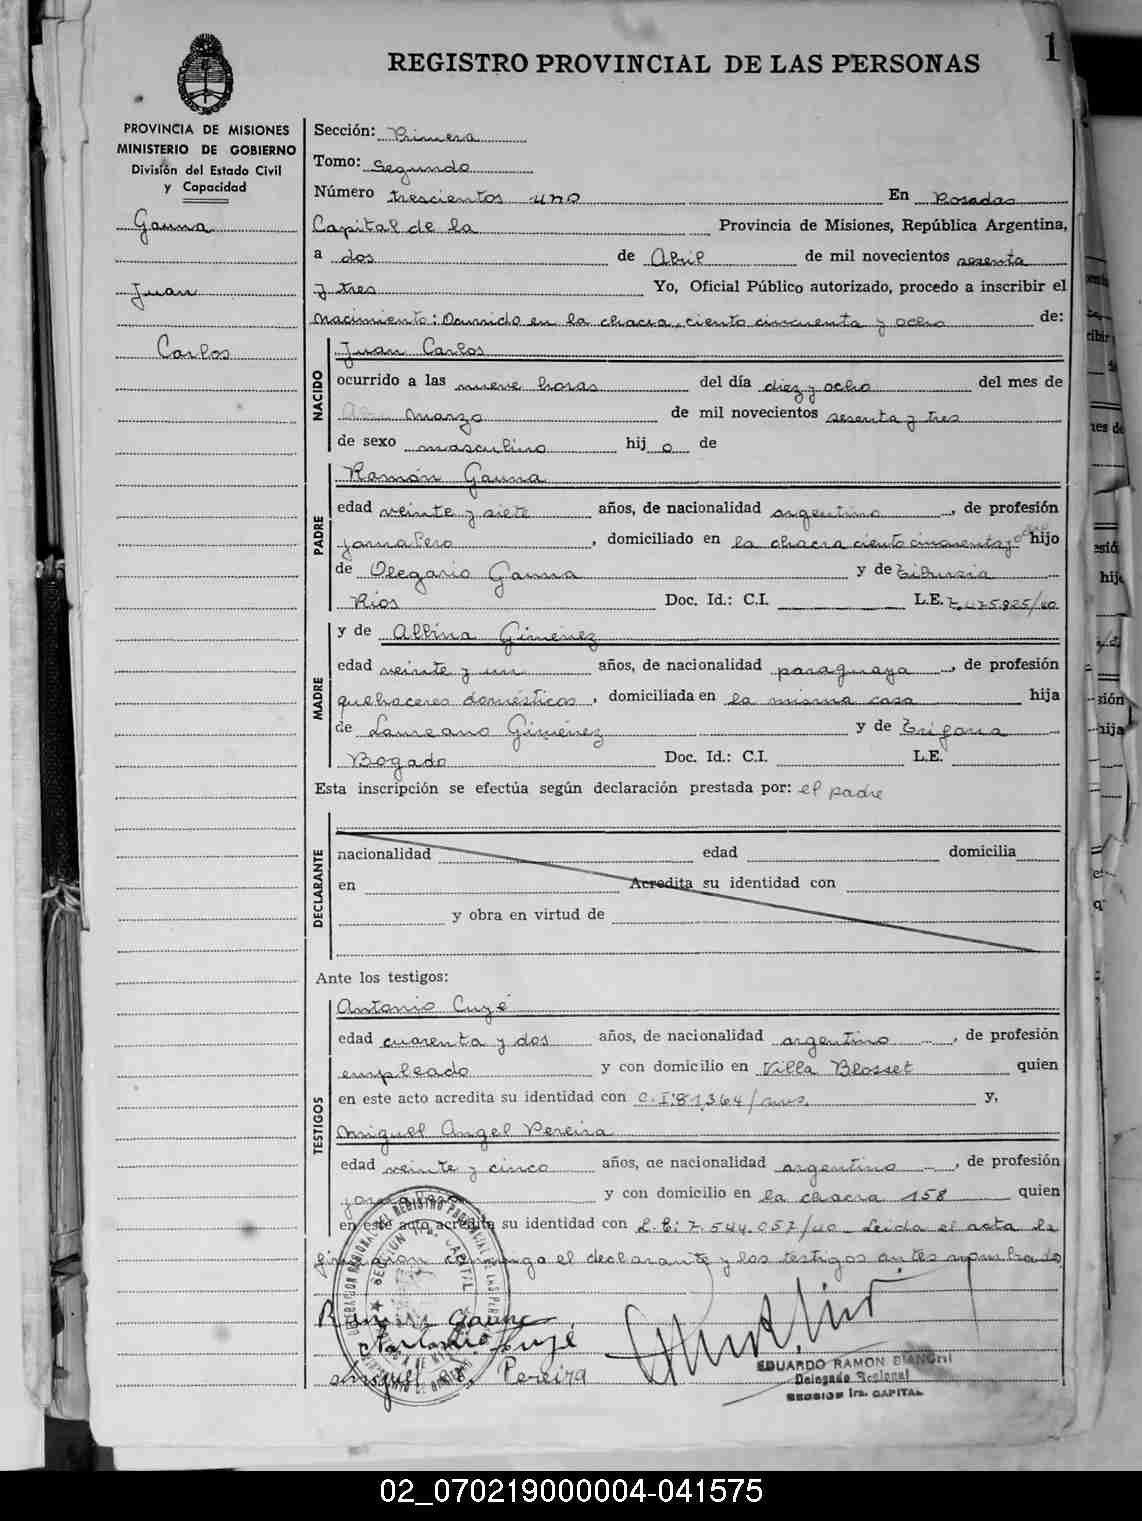 REGISTRO PROVINCIAL DE LAS PERSONAS
1
PROVINCIA DE MISIONES
MINISTERIO DE GOBIERNO
División del Estado Civil
y Capacidad
Gauna
Juan
Carlos
Sección: Primera
Tomo: Segundo
Número trescientos uno En Posadas
Capital de la Provincia de Misiones, República Argentina,
a dos de Abril de mil novecientos sesenta
y tres Yo, Oficial Público autorizado, procedo a inscribir el
nacimiento: Ocurrido en la chacra, ciento cincuenta y ocho de:
NACIDO
Juan Carlos
ocurrido a las nueve horas del día diez y ocho del mes de
marzo de mil novecientos sesenta y tres
de sexo masculino hij o de
PADRE
Ramón Gauna
edad veinte y siete años, de nacionalidad argentino, de profesión
jornalero, domiciliado en la chacra ciento cincuenta y ocho hijo
de Olegario Gauna y de Tiburcia
Ríos Doc. Id.: C.I. L.E. 7.475.825/40
MADRE
y de Albina Giménez
edad veinte y un años, de nacionalidad paraguaya, de profesión
quehaceres domésticos, domiciliada en la misma casa hija
de Laureano Giménez y de Trifona
Bogado Doc. Id.: C.I. L.E.
Esta inscripción se efectúa según declaración prestada por: el padre
DECLARANTE
nacionalidad edad domicilia
en Acredita su identidad con
y obra en virtud de
Ante los testigos:
TESTIGOS
Antonio Cuzé
edad cuarenta y dos años, de nacionalidad argentino, de profesión
empleado y con domicilio en Villa Blosset quien
en este acto acredita su identidad con C.I. 81.364/mns. y,
Miguel Angel Pereira
edad veinte y cinco años, de nacionalidad argentino, de profesión
jornalero y con domicilio en la chacra 158 quien
en este acto acredita su identidad con L.E: 7.544.057/40 Leida el acta la
firmaron conmigo el declarante y los testigos antes nombrado
Ramón Gauna
Antonio Cuzé
Miguel A. Pereira
EDUARDO RAMON BIANCHI
Delegado Regional
SECCION 1ra. CAPITAL
02_070219000004-041575